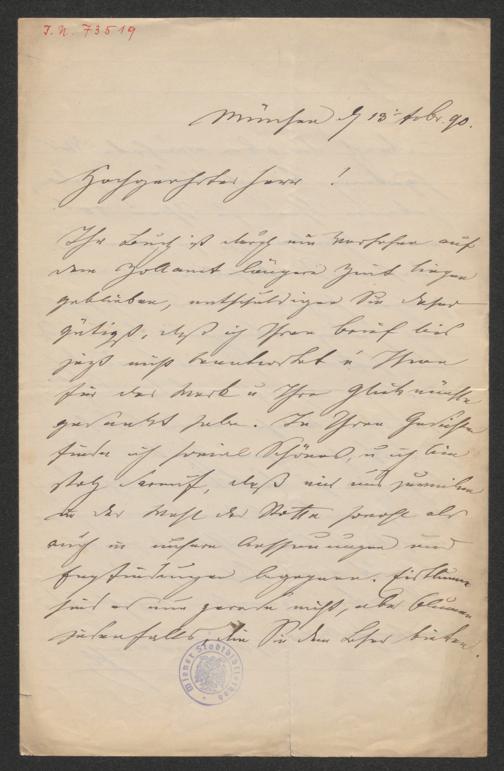 J. N. 73519
München d 13. Febr. 90.
Hochgeehrter Herr !
Ihr Buch ist durch ein Versehen auf
dem Zollamt längere Zeit liegen
geblieben, entschuldigen Sie daher
gütigst, daß ich Ihren Brief bis
jetzt nicht beantwortet u Ihnen
für das Werk u Ihre Glückwünsche
gedankt habe. In Ihren Gedichten
finde ich soviel Schönes, u ich bin
stolz darauf, daß wir uns zuweilen
in der Wahl der Stoffe sowohl als
auch in unseren Anschauungen und
Empfindungen begegnen.
sind es nun gerade nicht, aber Blumen
jedenfalls, die Sie dem Leser bieten.
Wiener Stadtbibliothek